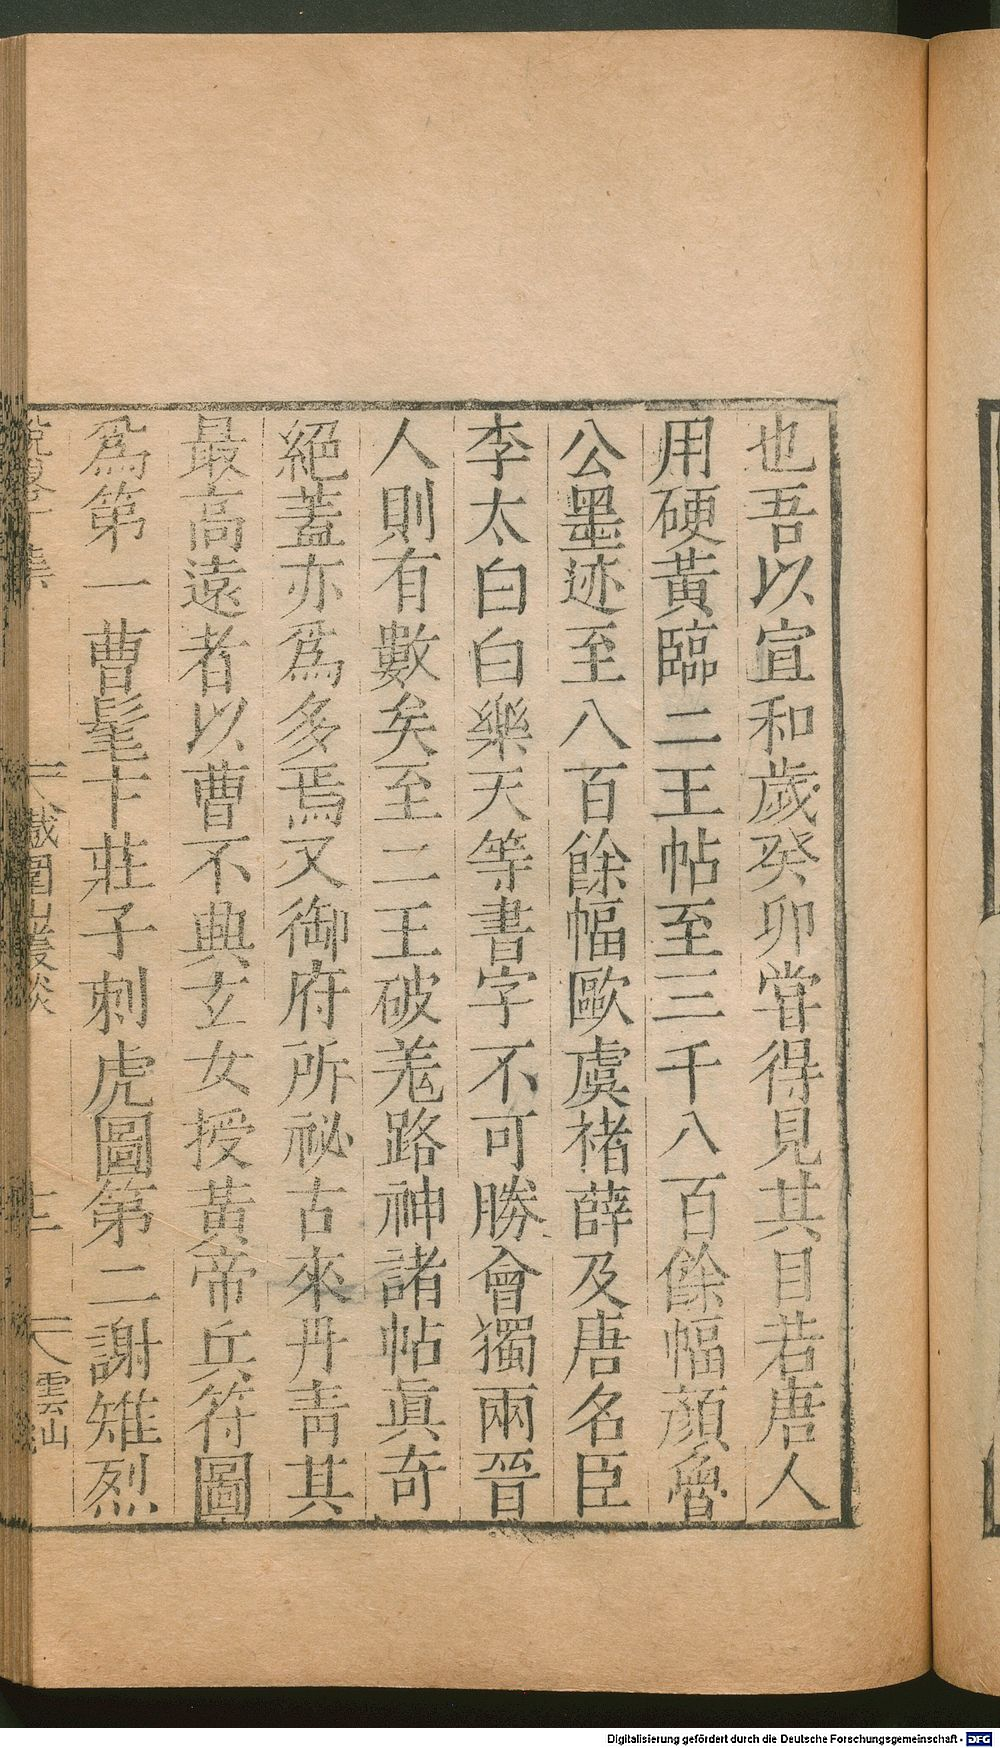 也吾以宣和歲癸卯嘗得見其目若唐人
用硬黃臨二王帖至三千八百餘幅顏魯
公墨迹至八百餘幅歐虞褚薛及唐名臣
李太白白樂天等書字不可勝會獨兩晉
人則有數矣至二王破羌路神諸帖眞竒
絕蓋亦爲多焉又御府所祕古來丹青其
最高遠者以曹不興玄女授黃帝兵符圖
爲第一曹髦卞莊子刺虎圖第二謝雉烈
鐵圍山叢談
雲山
Digitalisierung gefördert durch die Deutsche Forschungsgemeinschaft - DFG